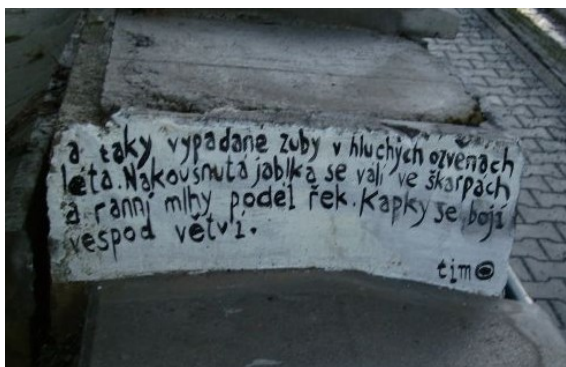 a taky vypadané zuby v hluchých ozvěnách
léta. Nakousnutá jablka se valí ve škarpách
a ranní mlhy podél řek. Kapky se bojí
vespod větví.
tim